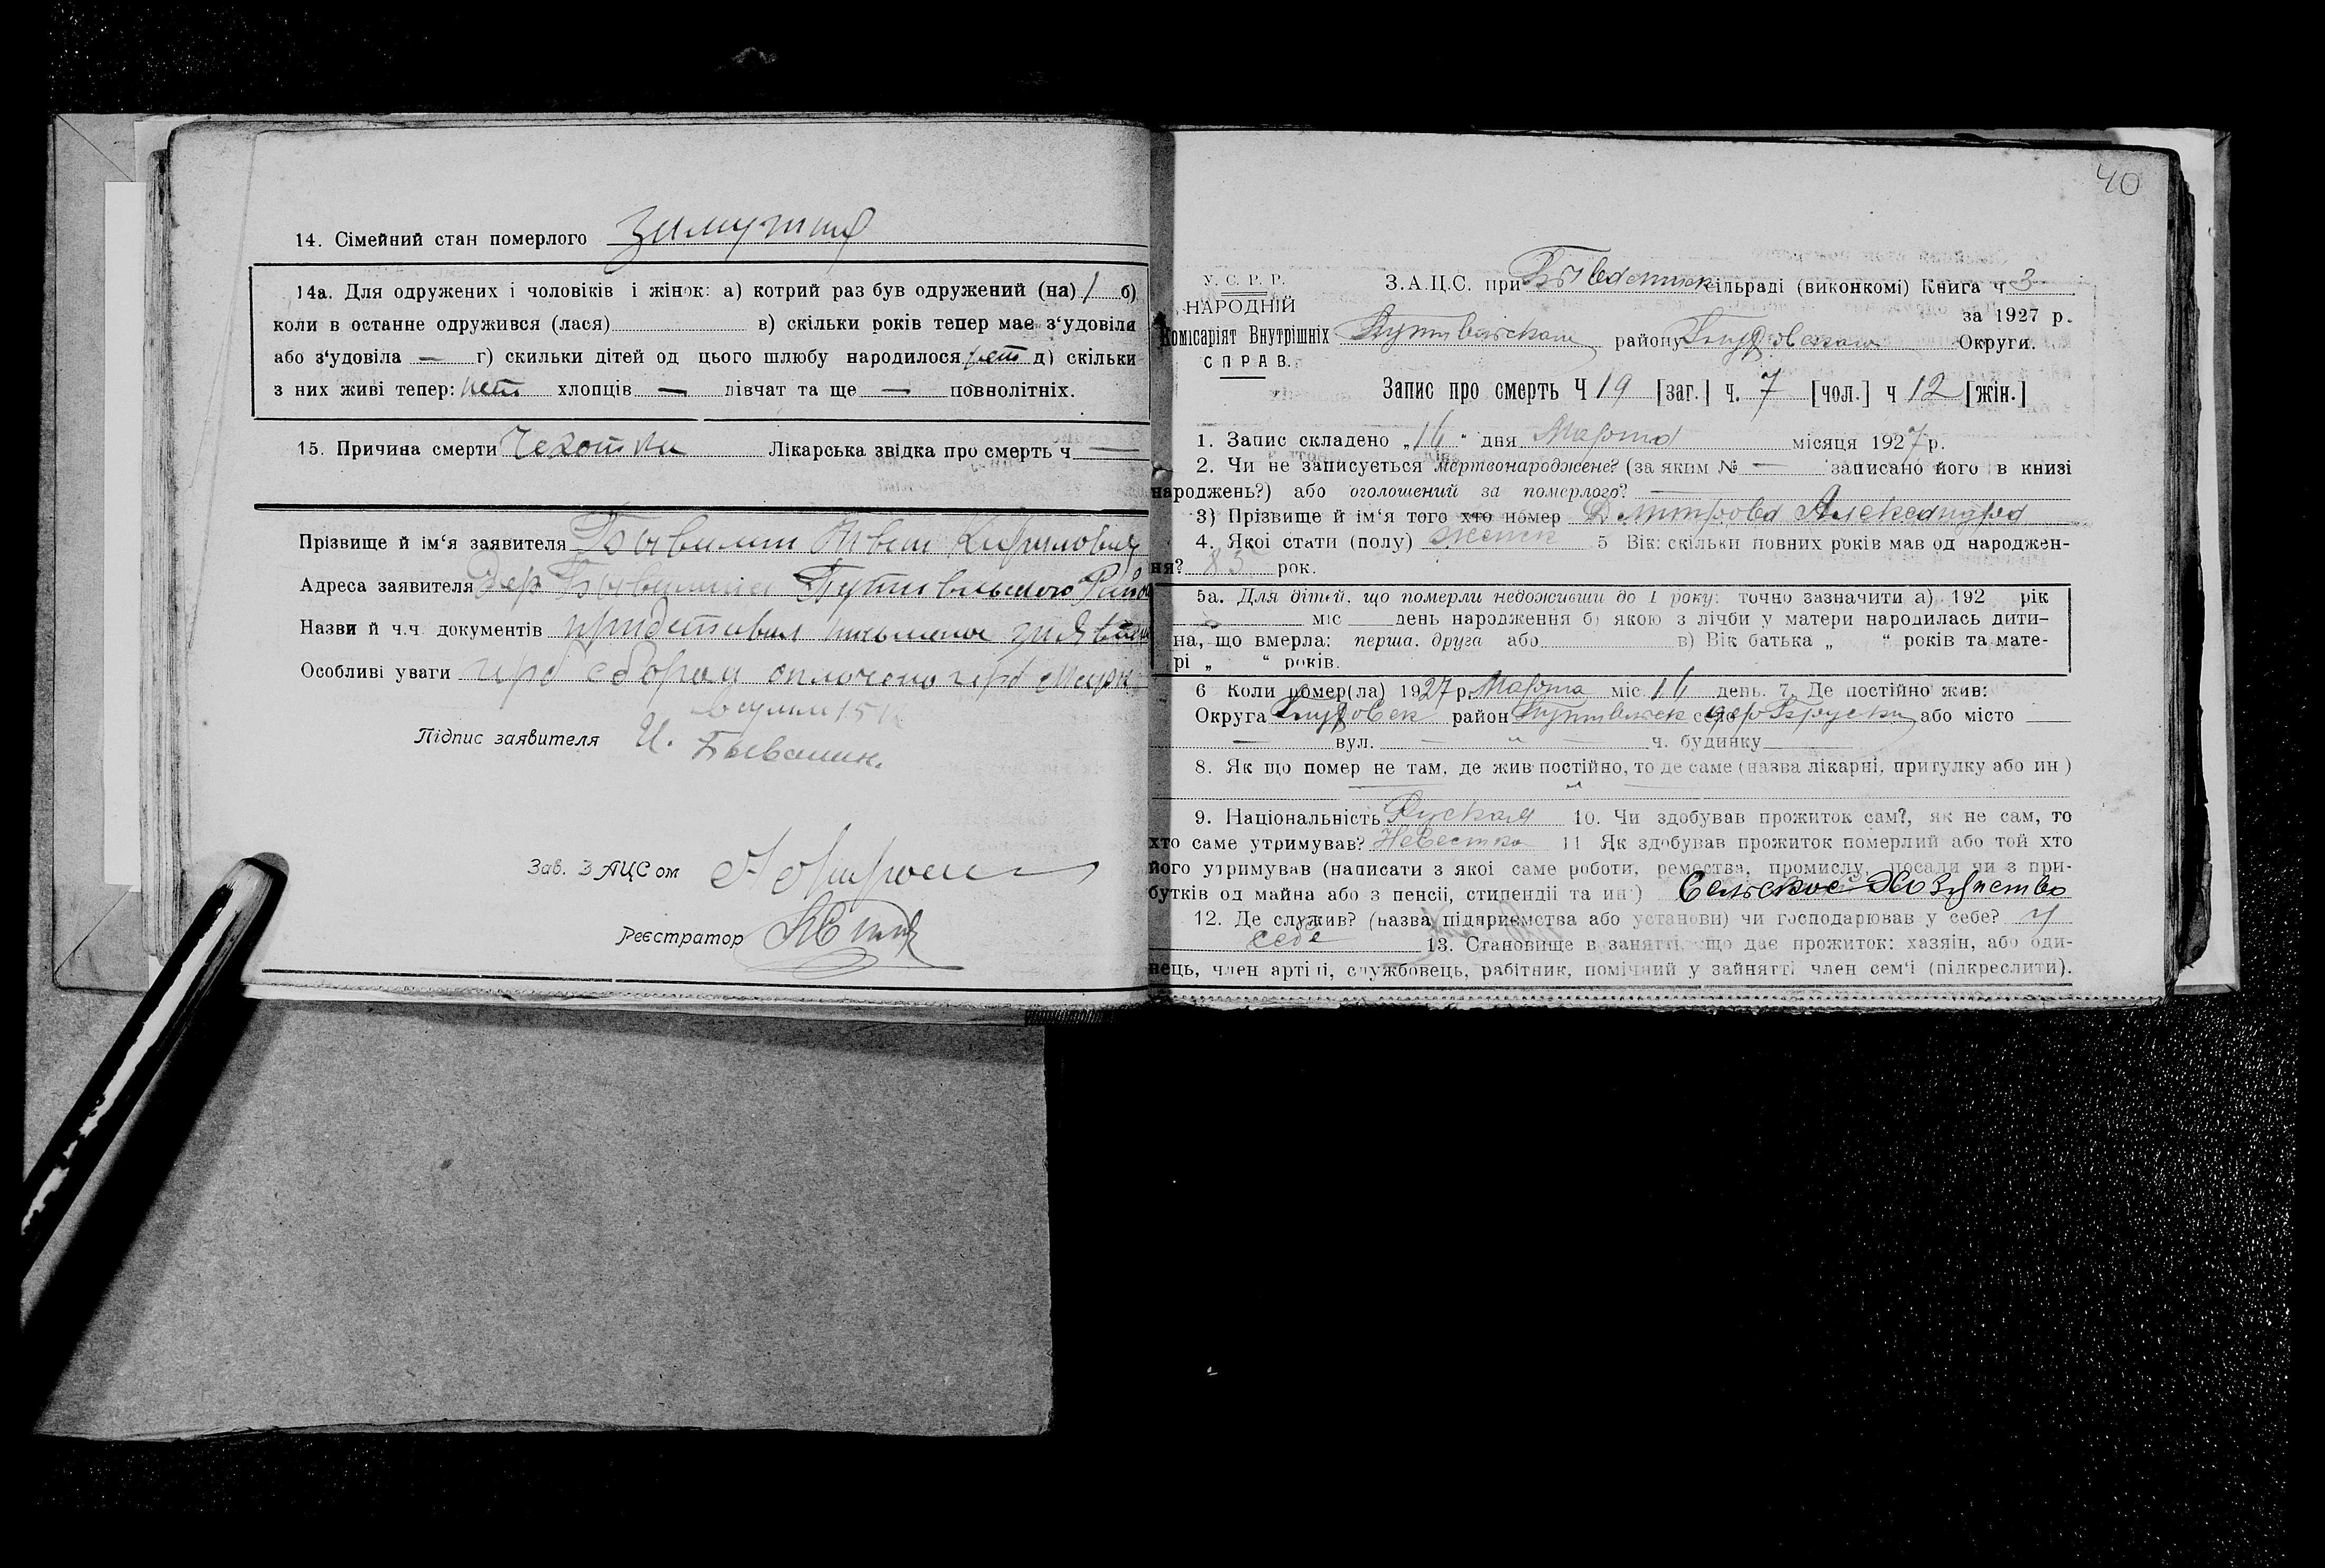 14. Сімейний стан померлого замужня
14а. Для одружених і чоловіків і жінок: а) котрий раз був одружений (на) 1 б)
коли в останне одружився (лася) в) скільки років тепер має з'удовіла
або з'удовіла — г) скильки дітей од цього шлюбу народилося нет д) скільки
з них живі тепер: нет хлопців — дівчат та ще — повнолітніх.
15. Причина смерти Чехотки Лікарська звідка про смерть ч —
Прізвище й ім'я заявителя Бывалин Кирилович
Адреса заявителя дер Бывалина Путивльского Райо
Назви й ч.ч. документів
Особливі уваги герб сбором оплочено герб марк
в сумм 15 к
Підпис заявителя И. Бывалин.
Зав. ЗАЦСом
Реєстратор
40
У. С. Р. Р.
НАРОДНІЙ
Комісаріят Внутрішніх
СПРАВ.
З.А.Ц.С. при сільраді (виконкомі) Книга ч 3
за 1927 р.
Путивльском району Глуховском Округи.
Запис про смерть Ч 19 [заг.] ч. 7 [чол.] ч 12 [жін.]
1. Запис складено „16“ дня Марта місяця 1927 р.
2. Чи не записується мертвонароджене? (за яким № — записано його в книзі
народжень?) або оголошений за померлого? —
3) Прізвище й ім'я того хто помер Дмитрова Александра
4. Якої стати (полу) женск 5 Вік: скільки повних років мав од народжен-
ня? 83 рок.
5а. Для дітей, що померли недоживши до 1 року: точно зазначити а) 192 рік
міс день народження б) якою з лічби у матери народилась дити-
на, що вмерла: перша, друга або в) Вік батька „ “ років та мате-
рі „ “ років.
6 Коли помер(ла) 1927 р. Марта міс. 16 день. 7. Де постійно жив:
Округа Глуховск район Путивльск село дер Бруски або місто —
— вул. — „ — ч. будинку
8. Як що помер не там, де жив постійно, то де саме (назва лікарні, притулку або ин)
9. Національність Руская 10. Чи здобував прожиток сам?, як не сам, то
хто саме утримував? Невестка 11 Як здобував прожиток померлий або той хто
його утримував (написати з якої саме роботи, ремества, промислу, посади чи з при-
бутків од майна або з пенсії, стипендії та ин) Сельское Хозяйство
12. Де служив? (назва підприємства або установи) чи господарював у себе? у
себе 13. Становище в занятті, що дає прожиток: хазяїн, або оди-
нець, член артілі, службовець, рабітник, помічний у зайнятті член сем'ї (підкреслити).